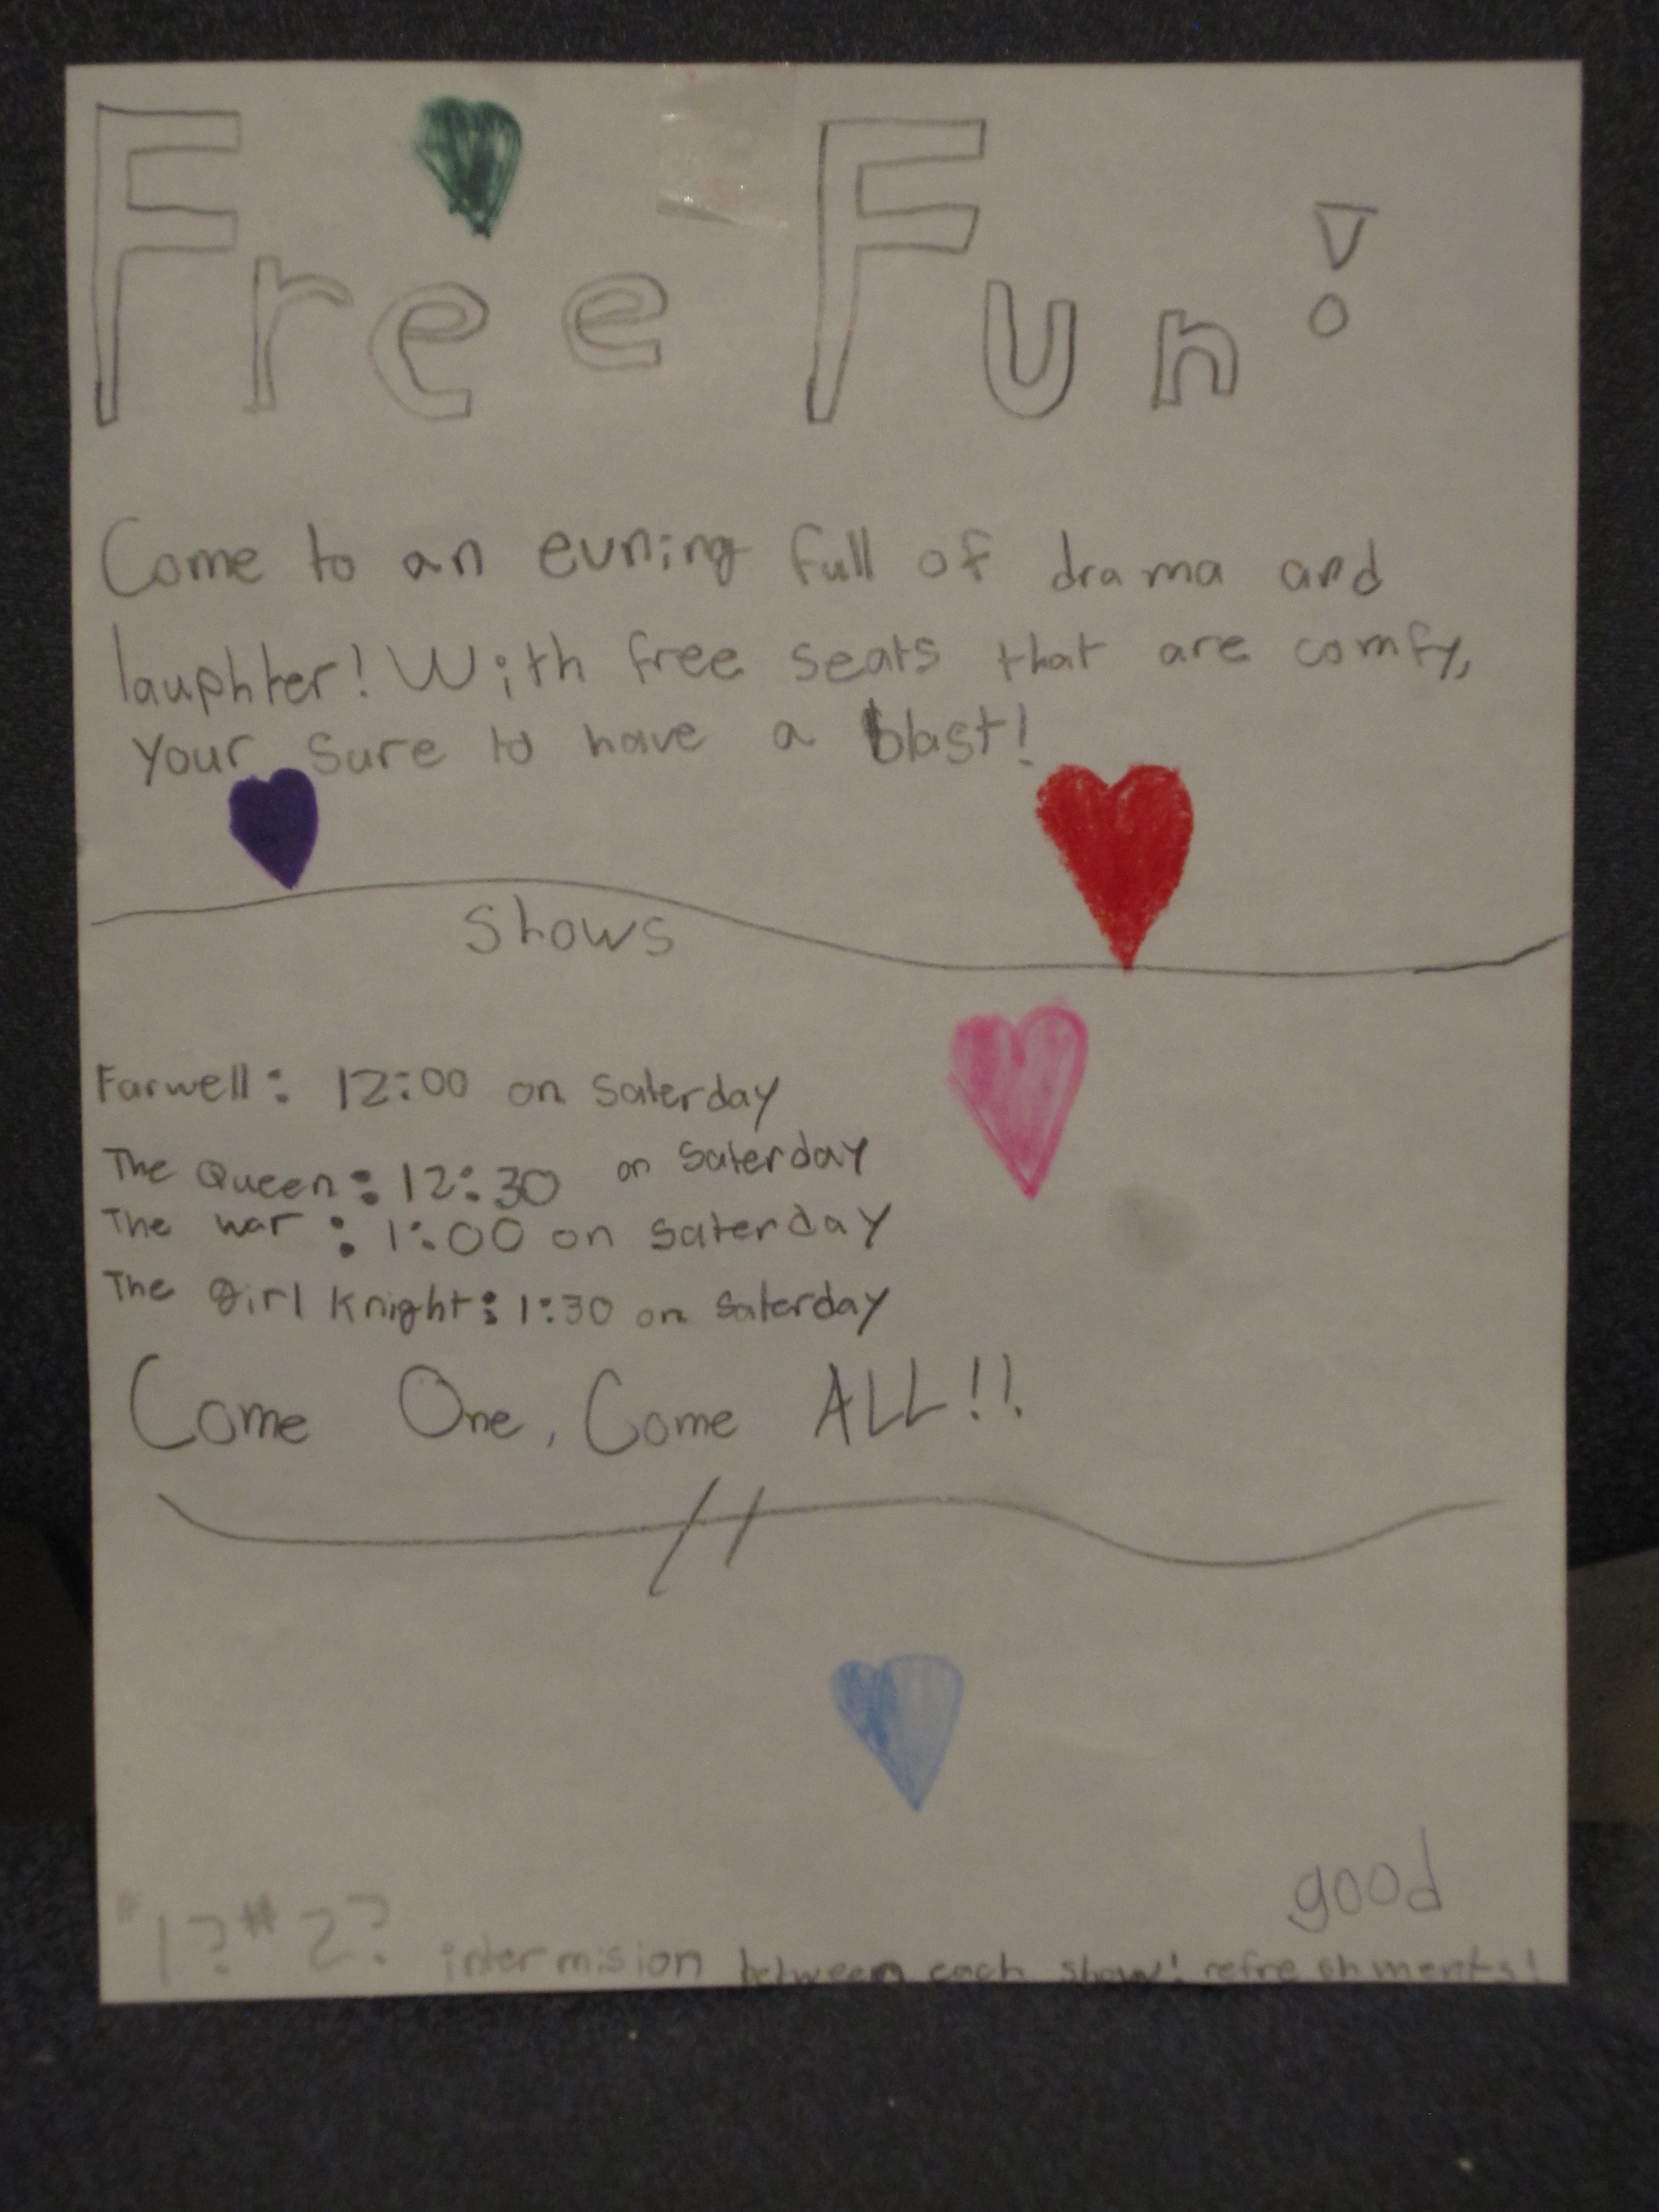 Free Fun!
Come to an evning full of drama and
lauphter! With free seats that are comfy,
your sure to have a blast!
Shows
Farwell: 12:00 on Saterday
The Queen: 12:30 on Saterday
The war: 1:00 on Saterday
The Girl Knight: 1:30 on Saterday
Come One, Come ALL!!
good
#1?#2? intermision between each show! refreshments!